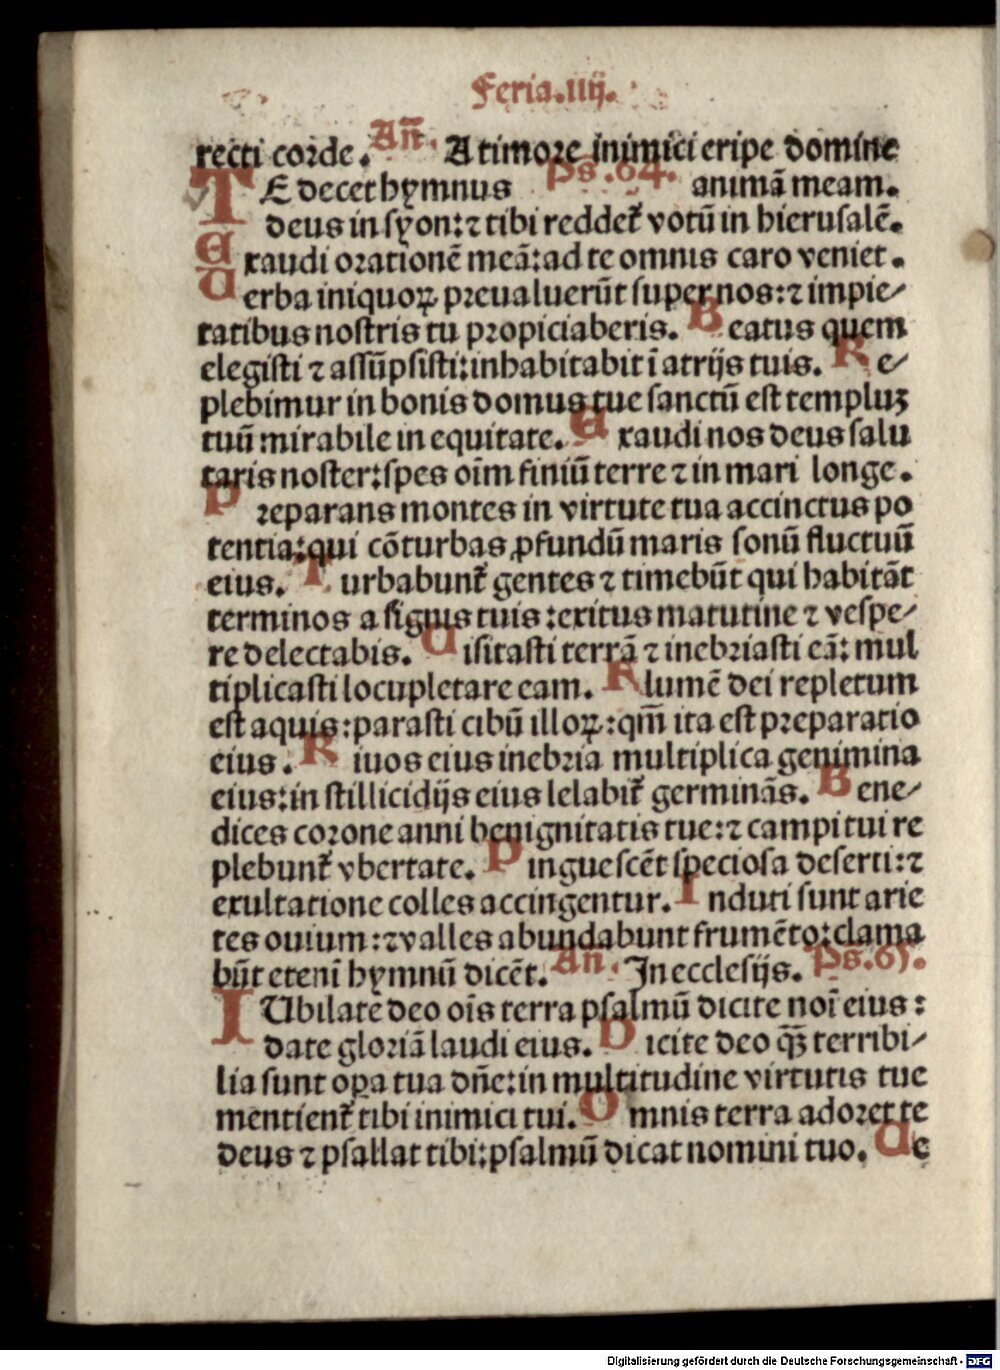 Feria.iiij.
recti corde. Añ. A timore inimici eripe domine
TE decet hymnus Ps.64. animā meam.
deus in syon:⁊ tibi reddet᷑ votū in hierusalē.
Exaudi orationē meā:ad te omnis caro veniet.
Uerba iniquoꝝ preualuerūt super nos:⁊ impie/
tatibus nostris tu propiciaberis. Beatus quem
elegisti ⁊ assūpsisti:inhabitabit ī atrijs tuis. Re/
plebimur in bonis domus tue sanctū est templuꝫ
tuū mirabile in equitate. Exaudi nos deus salu
taris noster:spes oīm finiū terre ⁊ in mari longe.
Preparans montes in virtute tua accinctus po
tentia:qui cōturbas ꝓfundū maris sonū fluctuū
eius. Turbabunt᷑ gentes ⁊ timebūt qui habitāt
terminos a signis tuis:exitus matutine ⁊ vespe/
re delectabis. Uisitasti terrā ⁊ inebriasti eā: mul
tiplicasti locupletare eam. Flumē dei repletum
est aquis:parasti cibū illoꝝ:qm̄ ita est preparatio
eius. Riuos eius inebria multiplica genimina
eius:in stillicidijs eius lelabit᷑ germinās. Bene/
dices corone anni benignitatis tue:⁊ campi tui re
plebunt᷑ vbertate. Pinguescēt speciosa deserti:⁊
exultatione colles accingentur. Induti sunt arie
tes ouium:⁊ valles abundabunt frumēto:clama
būt etenī hymnū dicēt. Añ. In ecclesijs. Ps.65.
IUbilate deo oīs terra psalmū dicite noī eius:
date gloriā laudi eius. Dicite deo q̄ꝫ terribi/
lia sunt oꝑa tua dñe:in multitudine virtutis tue
mentient᷑ tibi inimici tui. Omnis terra adoret te
deus ⁊ psallat tibi:psalmū dicat nomini tuo. Ue
Digitalisierung gefördert durch die Deutsche Forschungsgemeinschaft - DFG